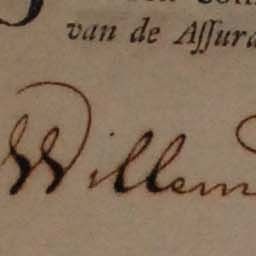 van de Aſſura
Willem